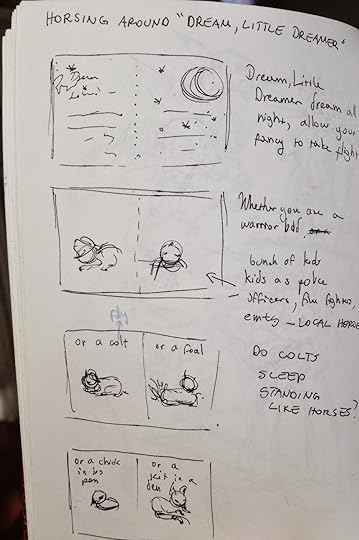 HORSING AROUND "DREAM, LITTLE DREAMER"
Dream, Little
Dreamer dream all
night, allow your
fancy to take flight
Whether you are a
warrior bold
bunch of kids
kids as police
officers, fire fighters,
emts – LOCAL HEROE
fly
or a colt
or a foal
DO COLTS
SLEEP
STANDING
LIKE HORSES?
or a chick
in his
pen
or a
kit in a
den